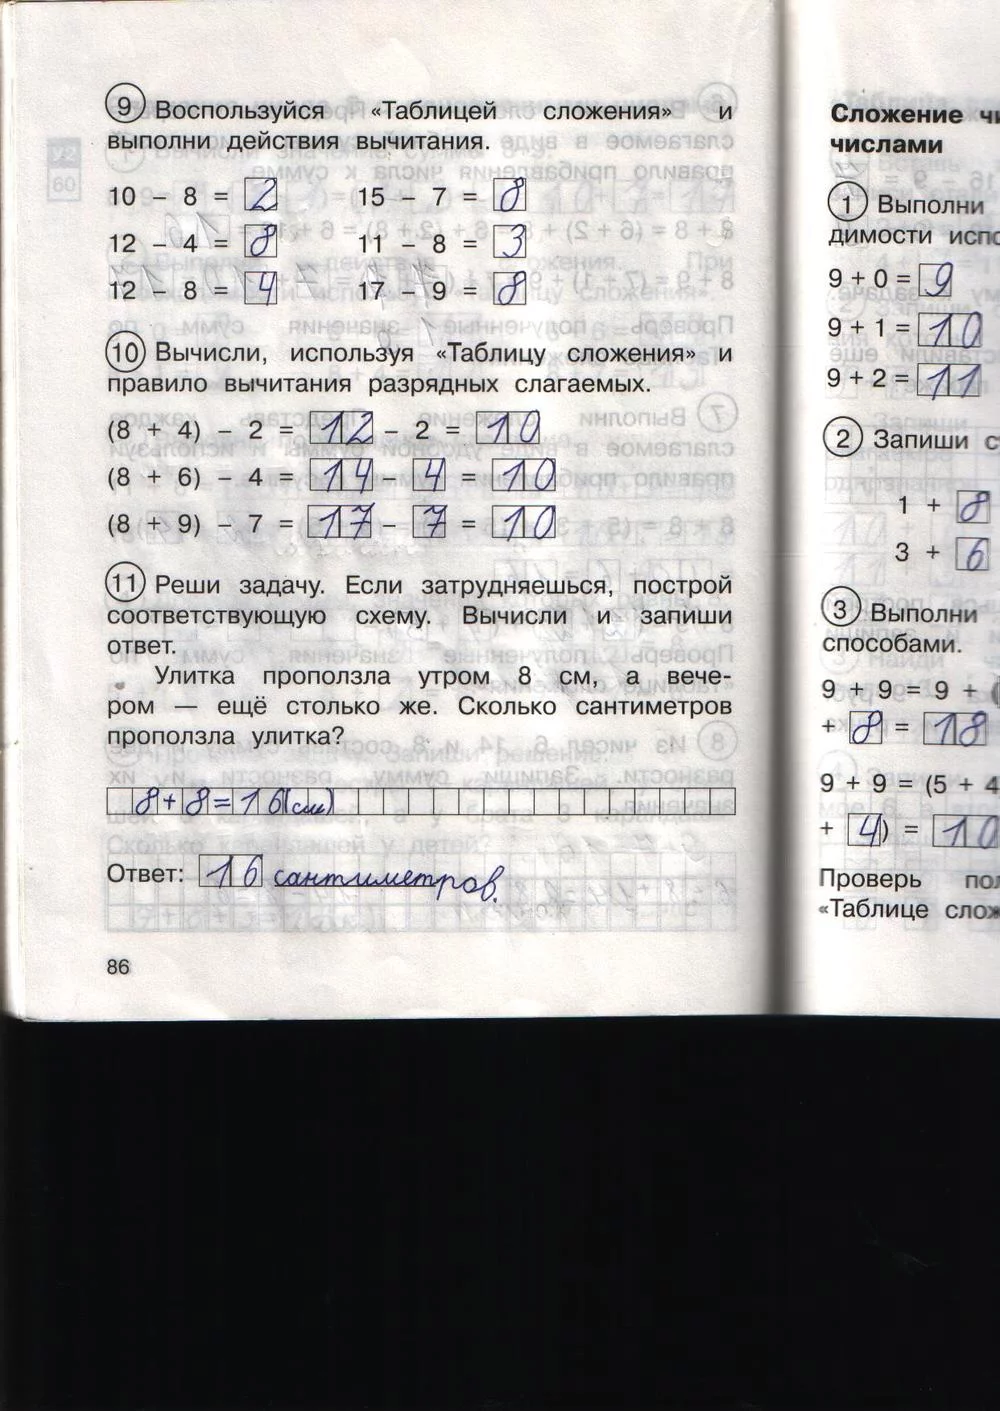 9 Воспользуйся «Таблицей сложения» и
выполни действия вычитания.
10 – 8 = 2 15 – 7 = 8
12 – 4 = 8 11 – 8 = 3
12 – 8 = 4 17 – 9 = 8
10 Вычисли, используя «Таблицу сложения» и
правило вычитания разрядных слагаемых.
(8 + 4) – 2 = 12 – 2 = 10
(8 + 6) – 4 = 14 – 4 = 10
(8 + 9) – 7 = 17 – 7 = 10
11 Реши задачу. Если затрудняешься, построй
соответствующую схему. Вычисли и запиши
ответ.
Улитка проползла утром 8 см, а вече-
ром — ещё столько же. Сколько сантиметров
проползла улитка?
8+8=16(см)
Ответ: 16 сантиметров.
86
Сложение чи
числами
1 Выполни
димости испо
9 + 0 = 9
9 + 1 = 10
9 + 2 = 11
2 Запиши с
1 + 8
3 + 6
3 Выполни
способами.
9 + 9 = 9 + (
+ 8 = 18
9 + 9 = (5 + 4
+ 4) = 10
Проверь пол
«Таблице слож